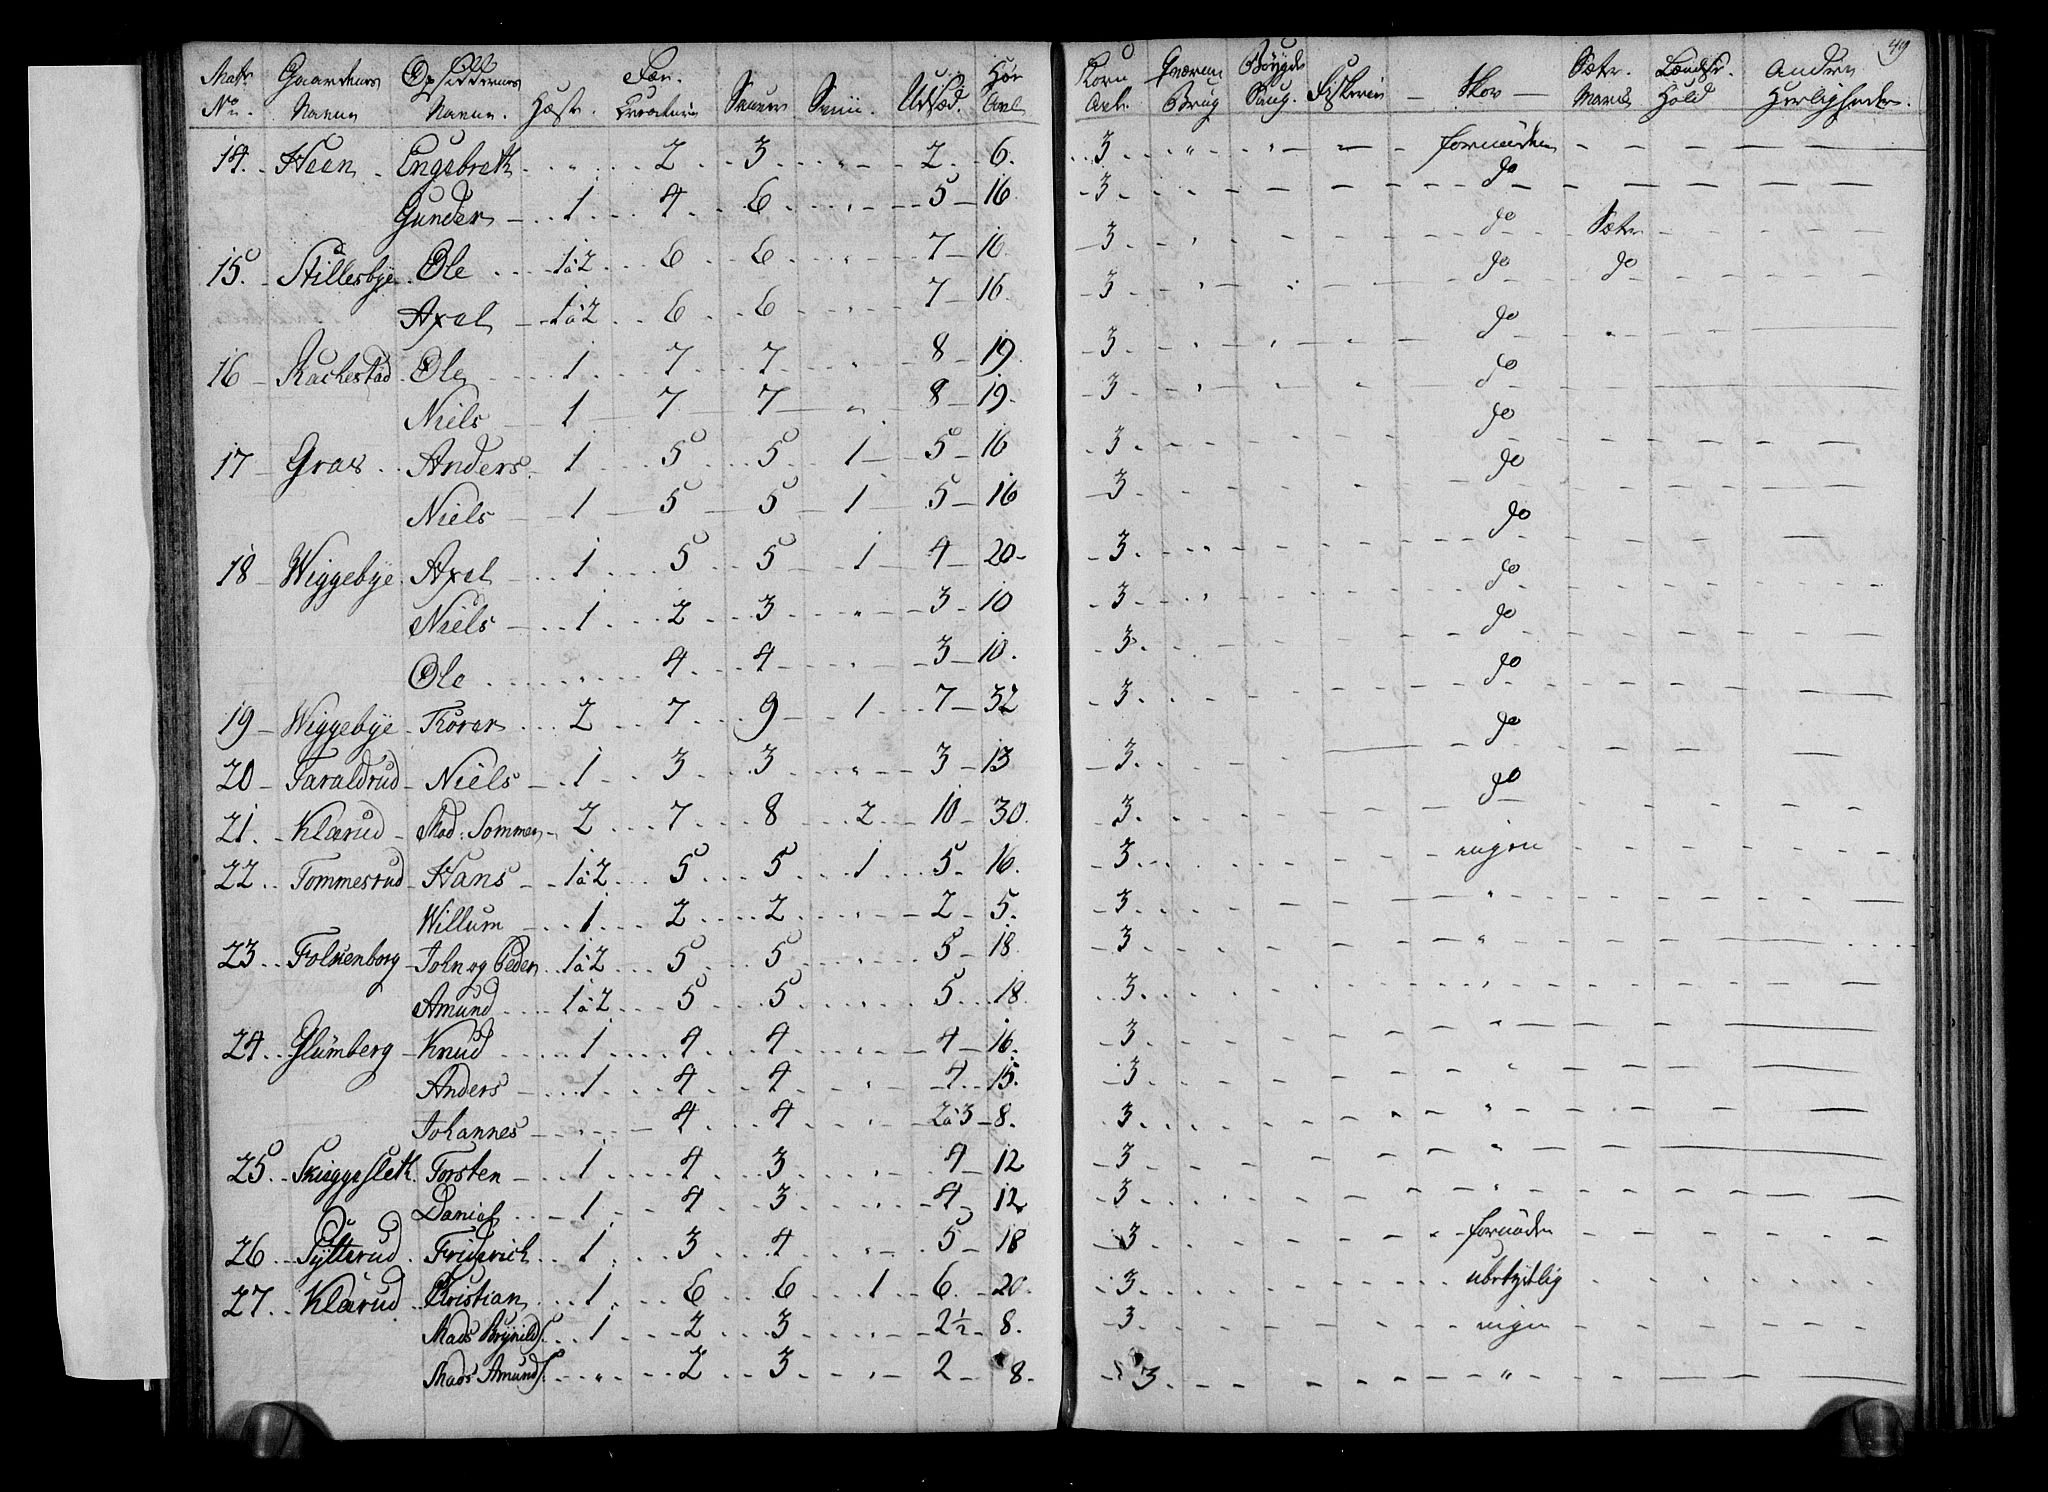 49
Matr No. Gaardenes Navne Opsiddernes Navne. Hæste. Fæe Creature Sauer Sviin. Udsæd. Høe Avl Korn Avl. Qværne Brug Bøygde Saug. Fiskerie Skov Sæter. Havn Lændsk. Hold Andre Herligheder.
14. Heen Engebreth „ 2 3 „ 2 6. 3 „ „ fornøden
Gunder 1 4 6 „ 5 16 3 do
15. Stillesbye Ole 1 à 2 6 6 „ 7 16 3 do Sæter
Axel 1 à 2 6 6 „ 7 16 3 do do
16 Rackestad Ole 1 7 7 „ 8 19. 3 do
Niels 1 7 7 „ 8 19. 3 do
17 Graae Anders 1 5 5 1 5 16 3 do
Niels 1 5 5 1 5 16 3 do
18 Wiggebye Axel 1 5 5 1 4 20 3 do
Niels 1 2 3 „ 3 10 3 do
Ole „ 4 4 „ 3 10. 3 do
19 Wiggebye Torer 2 7 9 1 7 32 3 do
20 Taraldrud Niels 1 3 3 „ 3 13 3 do
21. Klærud Mad: Sommer 2 7 8 2 10 30. 3 do
22 Tommesrud Hans 1 à 2 5 5 1 5 16. 3 ingen
Willum 1 2 2 „ 2 5. 3 „
23 Folkenborg John og Peder 1 à 2 5 5 5 18. 3 „
Amund 1 à 2 5 5 „ 5 18. 3 „
24 Glumberg Knud 1 4 4 „ 4 16. 3 „
Anders 1 4 4 „ 4 15. 3 „
Johannes „ 4 4 „ 2 à 3 8. 3 „
25 Skieggesleth Torsten 1 4 3 „ 4 12 3 „
Daniel 1 4 3 „ 4 12 3 „
26 Sytterud Friderich 1 3 4 „ 5 18 3 fornøden
27 Klærud Christian 1 6 6 1 6 20. 3 ubetydlig
Mads Brynilds. 1 2 3 „ 2½ 8. 3 ingen
Mads Amunds. „ 2 3 „ 2 8. 3 „